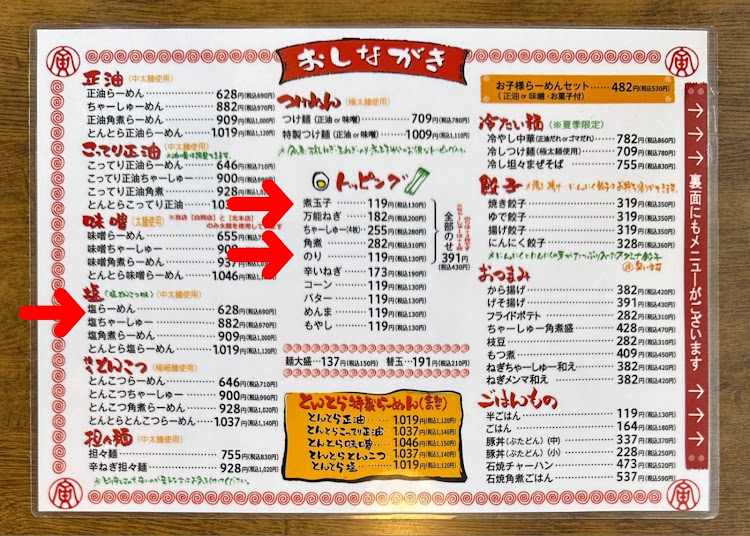 おしながき
正油(中太麺使用)
正油らーめん 628円(税込690円)
ちゃーしゅーめん 882円(税込970円)
正油角煮らーめん 909円(税込1,000円)
とんとら正油らーめん 1019円(税込1,120円)
こってり正油
こってり正油らーめん 646円(税込710円)
こってりちゃーしゅー
こってり正油角煮 928円
とんとらこってり正油
味噌
※当店【白岡店】と【北本店】のみ太麺を使用して
味噌らーめん 655円
味噌ちゃーしゅー
味噌角煮らーめん 937円
とんとら味噌らーめん 1046円
塩(塩とんこつ味)(中太麺使用)
塩らーめん 628円(税込690円)
塩ちゃーしゅー 882円(税込970円)
塩角煮らーめん 909円(税込1,000円)
とんとら塩らーめん 1019円(税込1,120円)
とんこつ(極細麺使用)
とんこつらーめん 646円(税込710円)
とんこつちゃーしゅー 900円(税込990円)
とんこつ角煮らーめん 928円(税込1,020円)
とんとらとんこつらーめん 1037円(税込1,140円)
担々麺(中太麺使用)
担々麺 755円(税込830円)
辛ねぎ担々麺 928円(税込1,020円)
つけめん(極太麺使用)
つけ麺(正油 or 味噌) 709円(税込780円)
特製つけ麺(正油 or 味噌) 1009円(税込1,110円)
トッピング
煮玉子 119円(税込130円)
万能ねぎ 182円(税込200円)
ちゃーしゅー(4枚) 255円(税込280円)
角煮 282円(税込310円)
のり 119円(税込130円)
全部のせ 391円(税込430円)
辛いねぎ 173円(税込190円)
コーン 119円(税込130円)
バター 119円(税込130円)
めんま 119円(税込130円)
もやし 119円(税込130円)
麺大盛…137円(税込150円) 替玉…191円(税込210円)
とんとら特製らーめん
とんとら正油 1019円(税込1,120円)
とんとらこってり正油 1037円(税込1,140円)
とんとら味噌 1046円(税込1,150円)
とんとらとんこつ 1037円(税込1,140円)
とんとら塩 1019円(税込1,120円)
お子様らーめんセット 482円(税込530円)
(正油 or 味噌・お菓子付)
冷たい麺(※夏季限定)
冷やし中華(正油だれ or ゴマだれ) 782円(税込860円)
冷しつけ麺(極太麺使用) 709円(税込780円)
冷し坦々まぜそば 755円(税込830円)
餃子
焼き餃子 319円(税込350円)
ゆで餃子 319円(税込350円)
揚げ餃子 319円(税込350円)
にんにく餃子 328円(税込360円)
おつまみ
から揚げ 382円(税込420円)
げそ揚げ 391円(税込430円)
フライドポテト 282円(税込310円)
ちゃーしゅー角煮盛 428円(税込470円)
枝豆 282円(税込310円)
もつ煮 409円(税込450円)
ねぎちゃーしゅー和え 382円(税込420円)
ねぎメンマ和え 382円(税込420円)
ごはんもの
半ごはん 119円(税込130円)
ごはん 164円(税込180円)
豚丼(ぶたどん)(中) 337円(税込370円)
豚丼(ぶたどん)(小) 228円(税込250円)
石焼チャーハン 473円(税込520円)
石焼角煮ごはん 537円(税込590円)
→→→裏面にもメニューがございます→→→